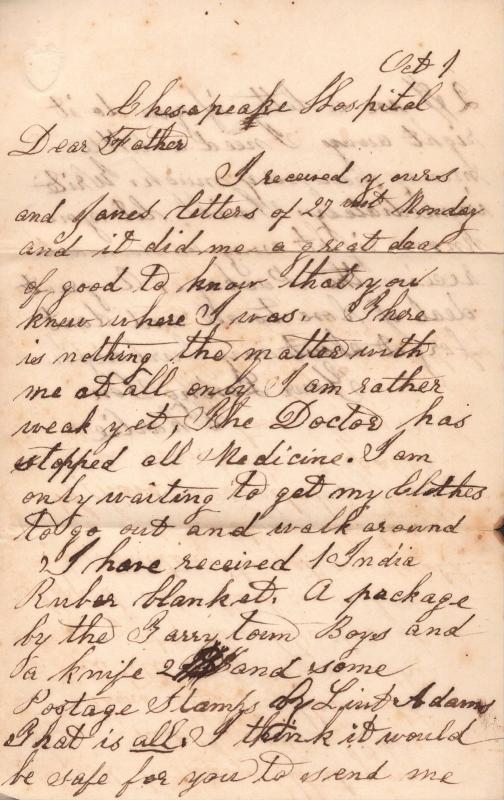 Oct 1
Chesapeake Hospital
Dear Father
I received yours
and Janes letters of 27 inst Monday
and it did me a great deal
of good to know that you
knew where I was. There
is nothing the matter with
me at all only I am rather
weak yet, The Doctor has
stopped all Medicine. I am
only waiting to get my Clothes
to go out and walk around
I have received 1 India
Ruber blanket. A package
by the Tarry town Boys and
a knife 2 and some
Postage Stamps of Liut Adams
That is all. I think it would
be safe for you to send me